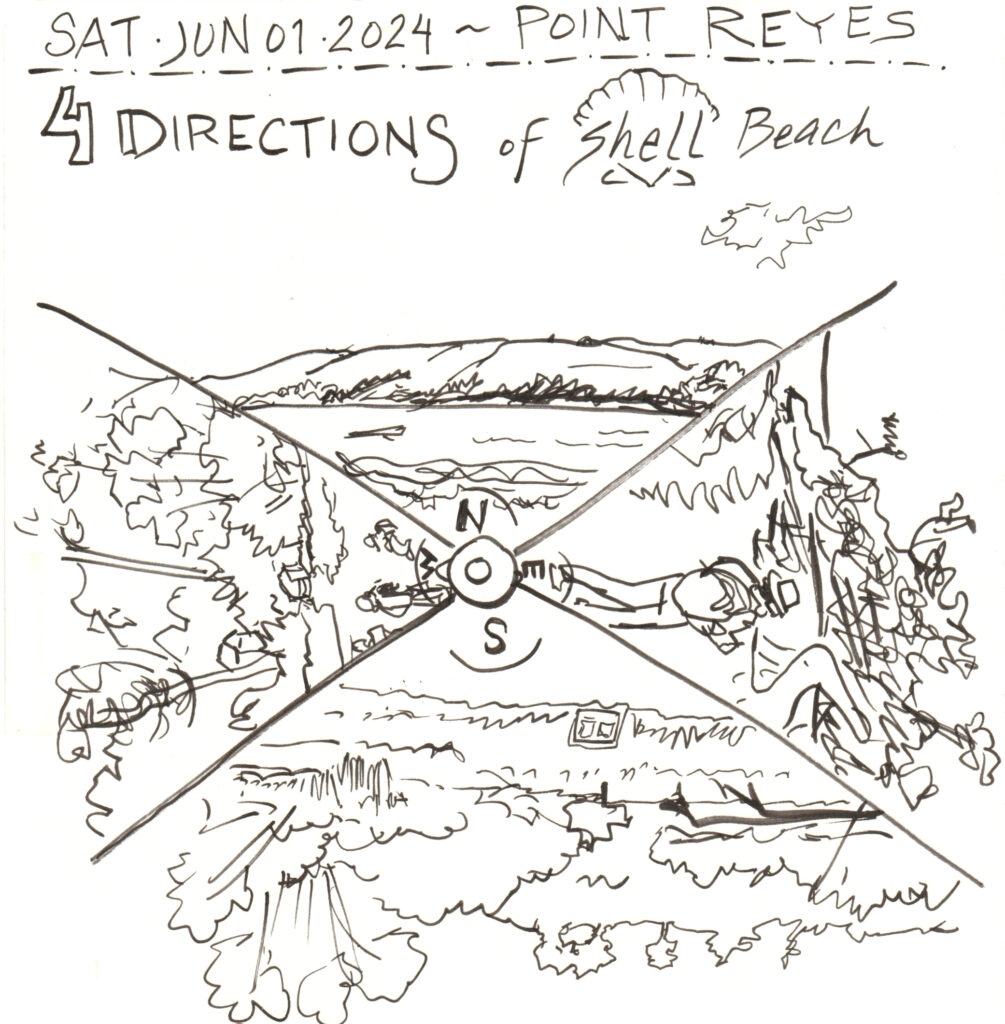 SAT. JUN 01. 2024 ~ POINT REYES
4 DIRECTIONS of Shell Beach
N
W E
S